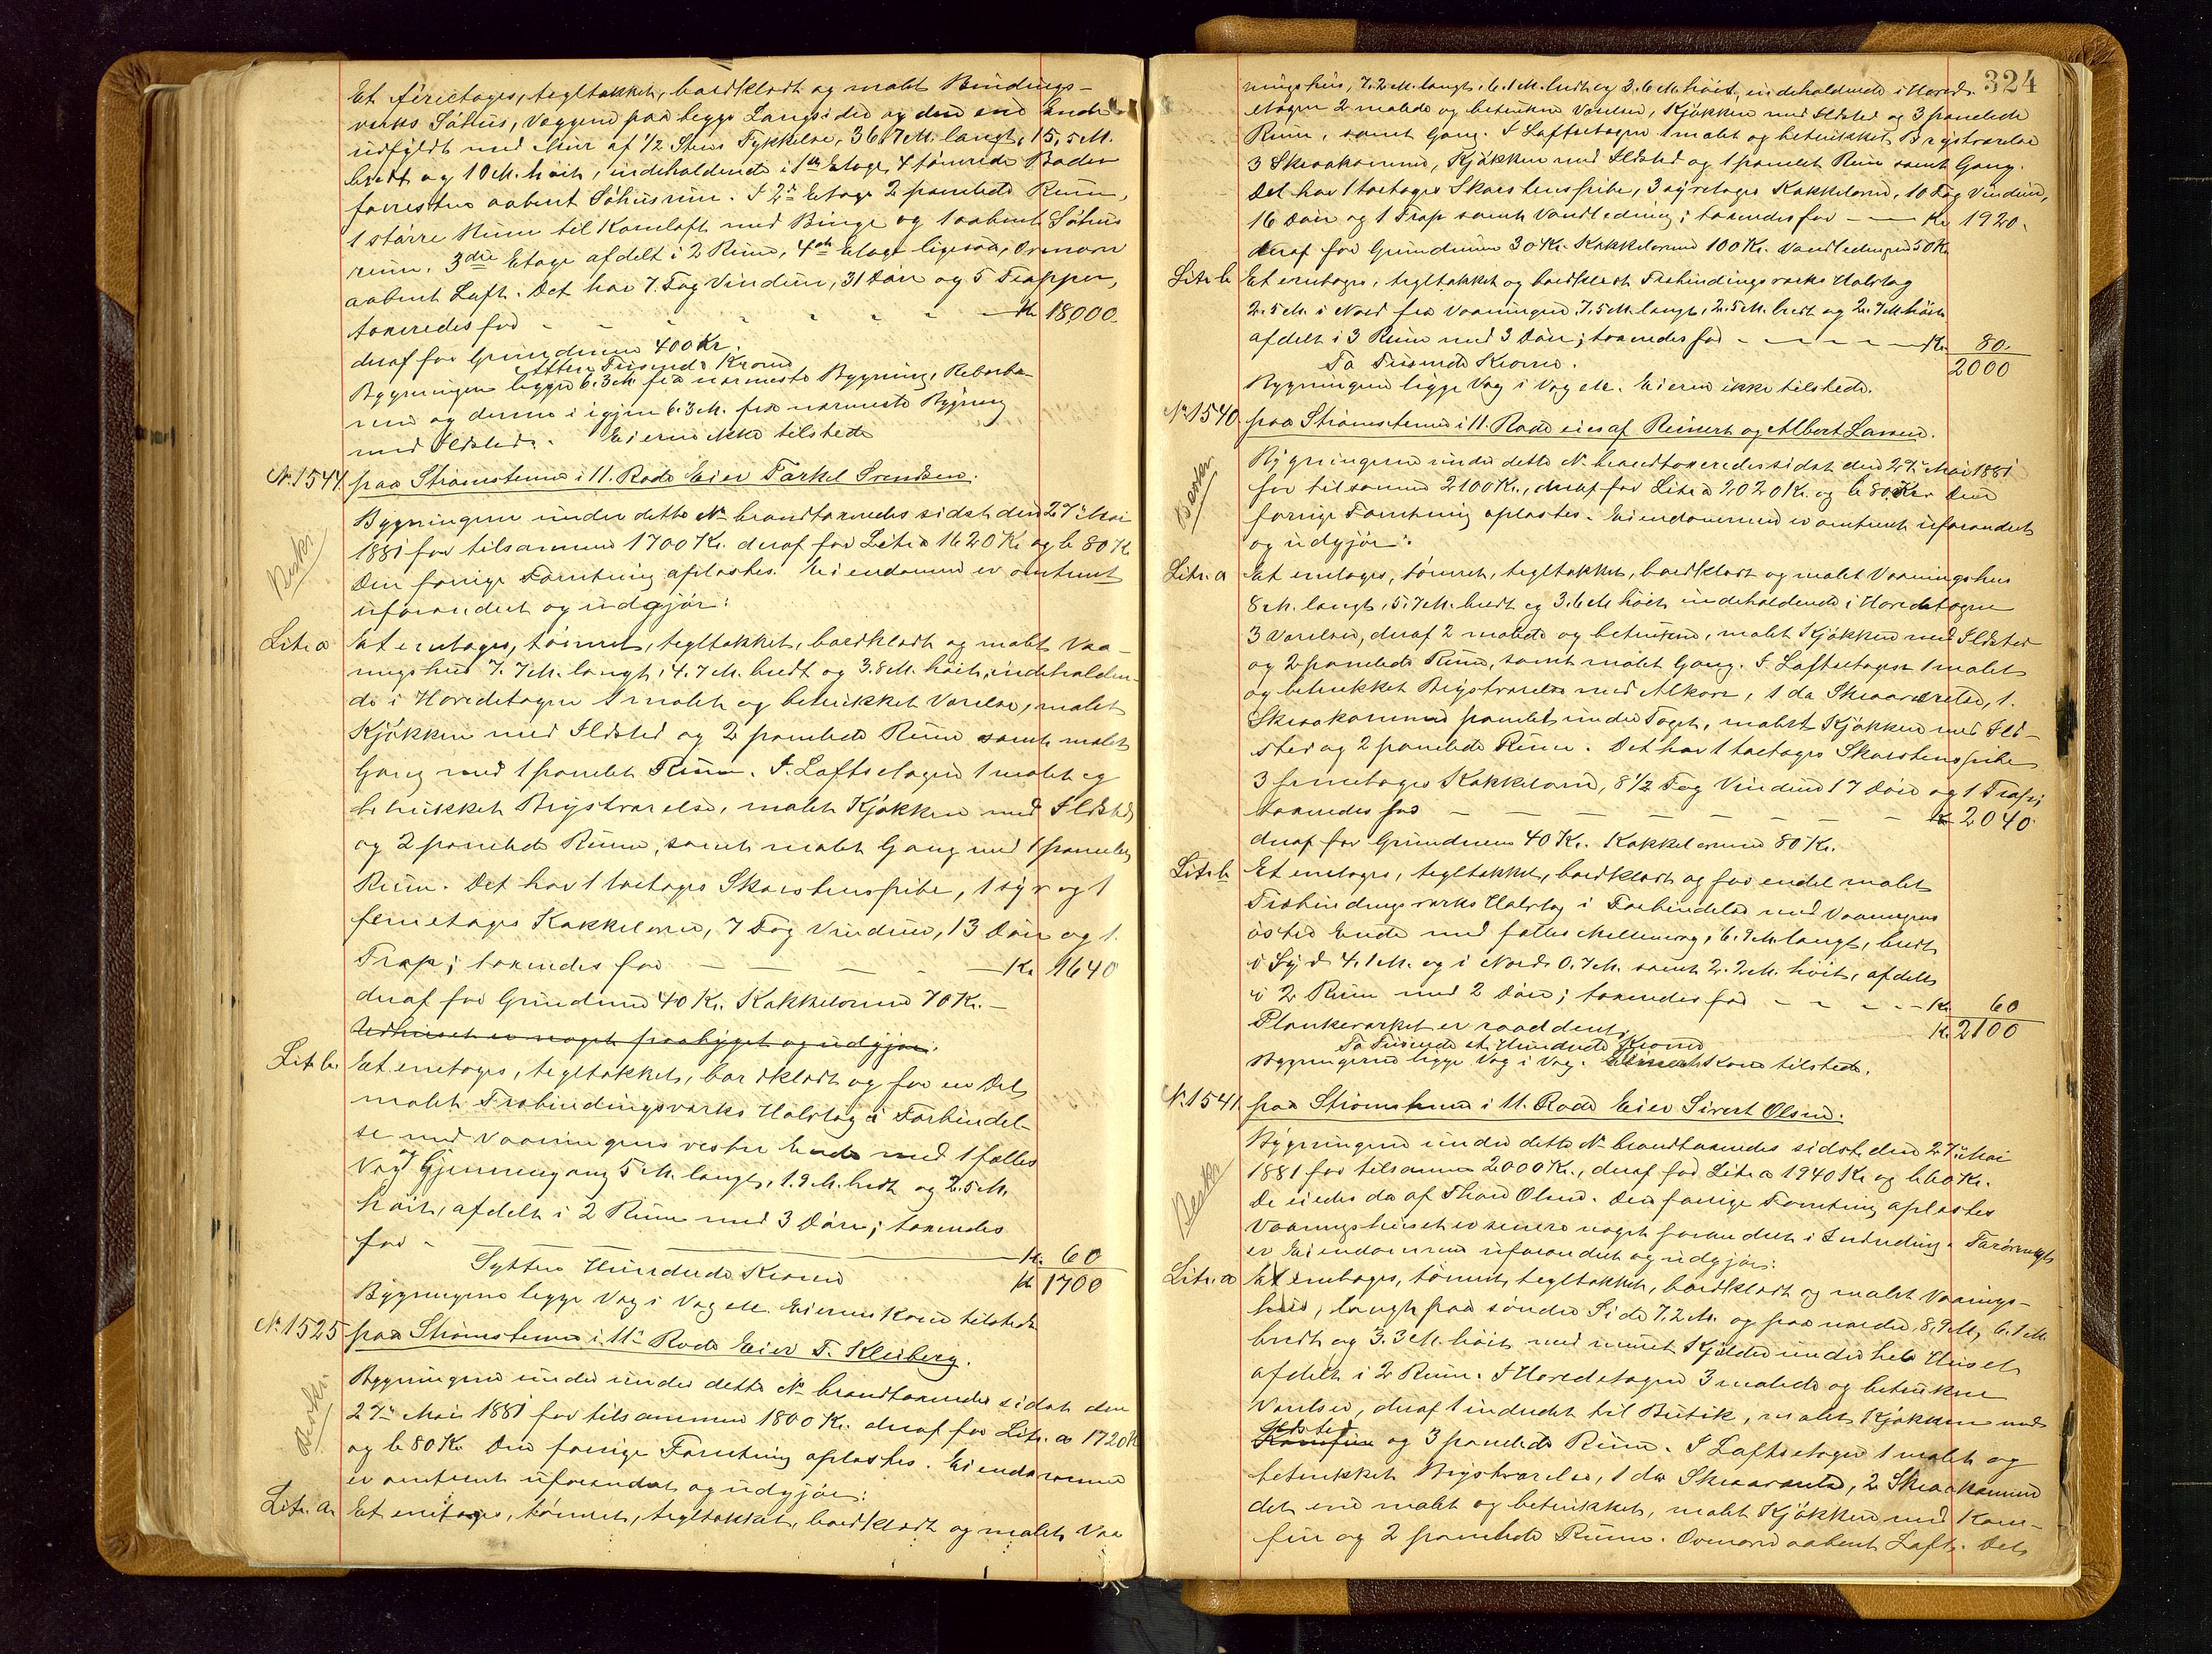 Et fireetages, tegltækket, bordklædt og malet Bindings-
verks Söhus, Væggene paa begge Langsider og den ene Ende
udfyldt med Mur af 1/2 Stens Tykkelse, 36,7 M. langt, 15,5 M.
bredt og 10 M. höit, indeholdende i 1ste Etage 4 tömrede Boder
forresten aabent Söhusrum. I 2den Etage 2 panelede Rum,
1 större Rum til Kornloft med Binge og 1 aabent Söhus
rum. 3die Etage afdelt i 2 Rum, 4de Etage ligesaa, Ovenover
aabent Loft. Det har 7 Fag Vinduer, 31 Döre og 5 Trapper,
taxeredes for - - - - - - Kr. 18000.
deraf for Grundmuren 400 Kr.
Atten Tusende Kroner
Bygningen ligger 6.3 M. fra nærmeste Bygning, Reberba-
nen og denne i igjen 6.3 M. fra nærmeste Bygning
med Ildsted. Eieren ikke tilstede
No. 1544. paa Strömstenene i 11. Rode Eier Tarkel Svendsen.
Beskr.
Bygningerne under dette No. brandtaxeredes sidst den 27de Mai
1881 for tilsammen 1700 Kr. deraf for Litr. a 1620 Kr og b 80 Kr
Den forrige Forretning oplæstes. Eiendommen er omtrent
uforandret og udgjör:
Litr. a Et enetages, tömret, tegltækket, bordklædt og malet Vaa-
ningshus 7.7 M. langt, 4.7 M. bredt og 3.8 M. höit, indeholden-
de i Hovedetagen 1 malet og betrukket Værelse, malet
Kjökken med Ildsted og 2 panelede Rum samt malet
Gang med 1 panelet Rum. I Loftsetagen 1 malet og
betrukket Brystværelse, malet Kjökken med Ildsted
og 2 panelede Rum, samt malet Gang med 1 panelet
Rum. Det har 1 toetages Skorstenspibe, 1 syv og 1
femetages Kakkelovne, 7 Fag Vinduer, 13 Döre og 1
Trap; taxeredes for - - - - - Kr. 1640
deraf for Grundmur 40 Kr. Kakkelovne 70 Kr. -
Udhuset er noget paabygget og udgjör:
Litr. b. Et enetages, tegltækket, bordklædt og for en Del
malet Træbindingsværks Halvtag i Forbindel-
se med Vaaningens vestre Ende med 1 fælles
Væg og Gjennemgang 5 M. langt, 1.9 M. bredt og 2.5 M.
höit, afdelt i 2 Rum med 3 Döre; taxeredes
for - Kr. 60
Sytten Hundrede Kroner Kr 1700
Bygningerne ligge Væg i Væg etc. Eierens Kone tilstede
No. 1525 paa Strömstenene i 11te Rode Eier T. Kleiberg.
Beskr.
Bygningerne under under dette No. brandtaxeredes sidst den
27de Mai 1881 for tilsammen 1800 Kr. deraf for Litr. a 1720 Kr
og b 80 Kr. Den forrige Forretning oplæstes. Eiendommen
er omtrent uforandret og udgjör:
Litr. a. Et enetages, tömret, tegltækket, bordklædt og malet Vaa
324
ningshus, 7.2 M. langt, 6.1 M. bredt og 3.6 M. höit, indeholdende i Hoved-
etagen 2 malede og betrukne Værelser, Kjökken med Ildsted og 3 panelede
Rum, samt Gang. I Loftsetagen 1 malet og betrukket Brystværelse
3 Skraakammere, Kjökken med Ildsted og 1 panelet Rum samt Gang.
Det har 1 toetages Skorstenspibe, 3 syvetages Kakkelovne, 10 Fag Vinduer,
16 Döre og 1 Trap samt Vandledning; taxeredes for - - Kr 1920.
deraf for Grundmuren 30 Kr. Kakkelovne 100 Kr. Vandledningen 50 Kr
Litr. b Et enetages, tegltækket og bordklædt Træbindingsværks Halvtag
2.5 M. i Nord fra Vaaningen 7.5 M. langt, 2.5 M. bredt og 2.7 M. höit
afdelt i 3 Rum med 3 Döre; taxeredes for - - - - - Kr. 80.
To Tusende Kroner. 2000
Bygningerne ligge Væg i Væg etc. Eieren ikke tilstede.
No. 1540. paa Strömstenene i 11. Rode eies af Reinert og Albert Larsen.
Beskr
Bygningerne under dette No. brandtaxeredes sidst den 27de Mai 1881
for tilsammen 2100 Kr., deraf for Litr. a 2020 Kr. og b 80 Kr. Den
forrige Forretning oplæstes. Eiendommen er omtrent uforandret
og udgjör:
Litr. a Et enetages, tömret, tegltækket, bordklædt og malet Vaaningshus
8 M. langt, 5.7 M. bredt og 3.6 M höit indeholdende i Hovedetagen
3 Værelser, deraf 2 malede og betrukne, malet Kjökken med Ildsted
og 2 panelede Rum, samt malet Gang. I Loftsetagen 1 malet
og betrukket Brystværelse med Alkove, 1 do Skraaværelse, 1.
Skraakammer panelet under Taget, malet Kjökken med Ild-
sted og 2 panelede Rum. Det har 1 toetages Skorstenspibe
3 femetages Kakkelovne, 8 1/2 Fag Vinduer 17 Döre og 1 Trap;
taxeredes for - - - - - - - - Kr 2040.
deraf for Grundmuren 40 Kr. Kakkelovnene 80 Kr.
Litr. b Et enetages, tegltækket, bordklædt og for endel malet
Træbindingsværks Halvtag i Forbindelse med Vaaningens
östre Ende med fælles Mellemvæg, 6.9 M. langt, bredt
i Syd 4.1 M. og i Nord 0.7 M. samt 2.2 M. höit, afdelt
i 2 Rum med 2 Döre; taxeredes for - - - - Kr. 60
Plankeværket er raaddent. Kr. 2100
To Tusende et Hundrede Kroner
Bygningerne ligge Væg i Væg. Kone tilstede.
No. 1541 paa Strömstenene i 11. Rode Eier Sivert Olsen.
Beskr
Bygningerne under dette No. brandtaxeredes sidst den 27de Mai
1881 for tilsammen 2000 Kr., deraf for Litr. a 1940 Kr og b 60 Kr.
De eiedes da af Thore Olsen. Den forrige Forretning oplæstes
Vaaningshuset er senere noget forandret i Indredning. Forövrigt
er Eiendommen uforandret og udgjör:
Litr. a Et enetages, tömret, tegltækket, bordklædt og malet Vaanings-
hus, langt paa söndre Side 7.2 M. og paa nordre 8.9 M, 6.1 M.
bredt og 3.3 M. höit med muret Kjelder under hele Huset
afdelt i 2 Rum. I Hovedetagen 3 malede og betrukne
Værelser, deraf 1 indredet til Butik, malet Kjökken med
Ildsted
Komfur og 3 panelede Rum. I Loftsetagen 1 malet og
betrukket Brystværelse, 1 do Skraaværelse, 2 Skraakammere
det ene malet og betrukket, malet Kjökken med Kom-
fur og 2 panelede Rum. Ovenover aabent Loft. Det